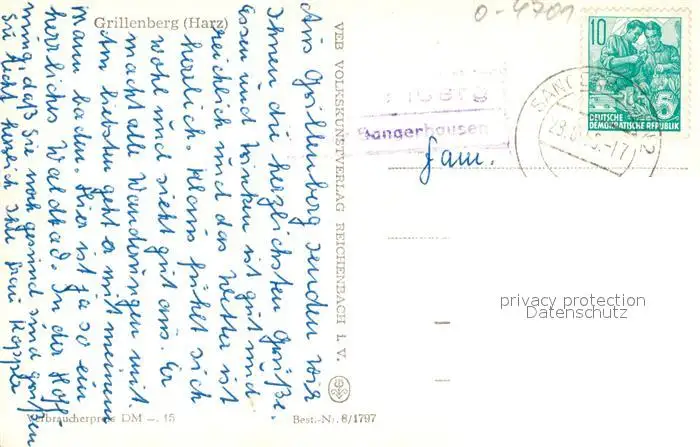 Grillenberg (Harz)
0-4701
Aus Grillenberg senden wir
Ihnen die herzlichsten Grüße.
Essen und Trinken ist gut und
reichlich und das Wetter ist
herrlich. Klaus fühlt sich
wohl und sieht gut aus. Er
macht alle Wanderungen mit.
Am liebsten geht er mit meinem
Mann baden. Hier ist ja so ein
herrliches Waldbad. In der Hoff-
nung, daß Sie noch gesund sind grüßen
Sie recht herzlich Ihre Frau
VEB VOLKSKUNSTVERLAG REICHENBACH i. V.
Verbraucherpreis DM –. 15
Best.-Nr. 8/1797
Sangerhausen
10
DEUTSCHE
DEMOKRATISCHE REPUBLIK
Fam.
privacy protection
Datenschutz